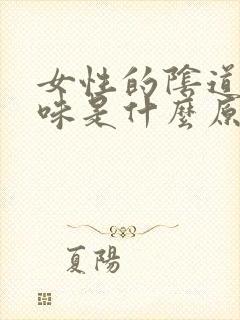 女性的陰道
味是什麼原
夏陽